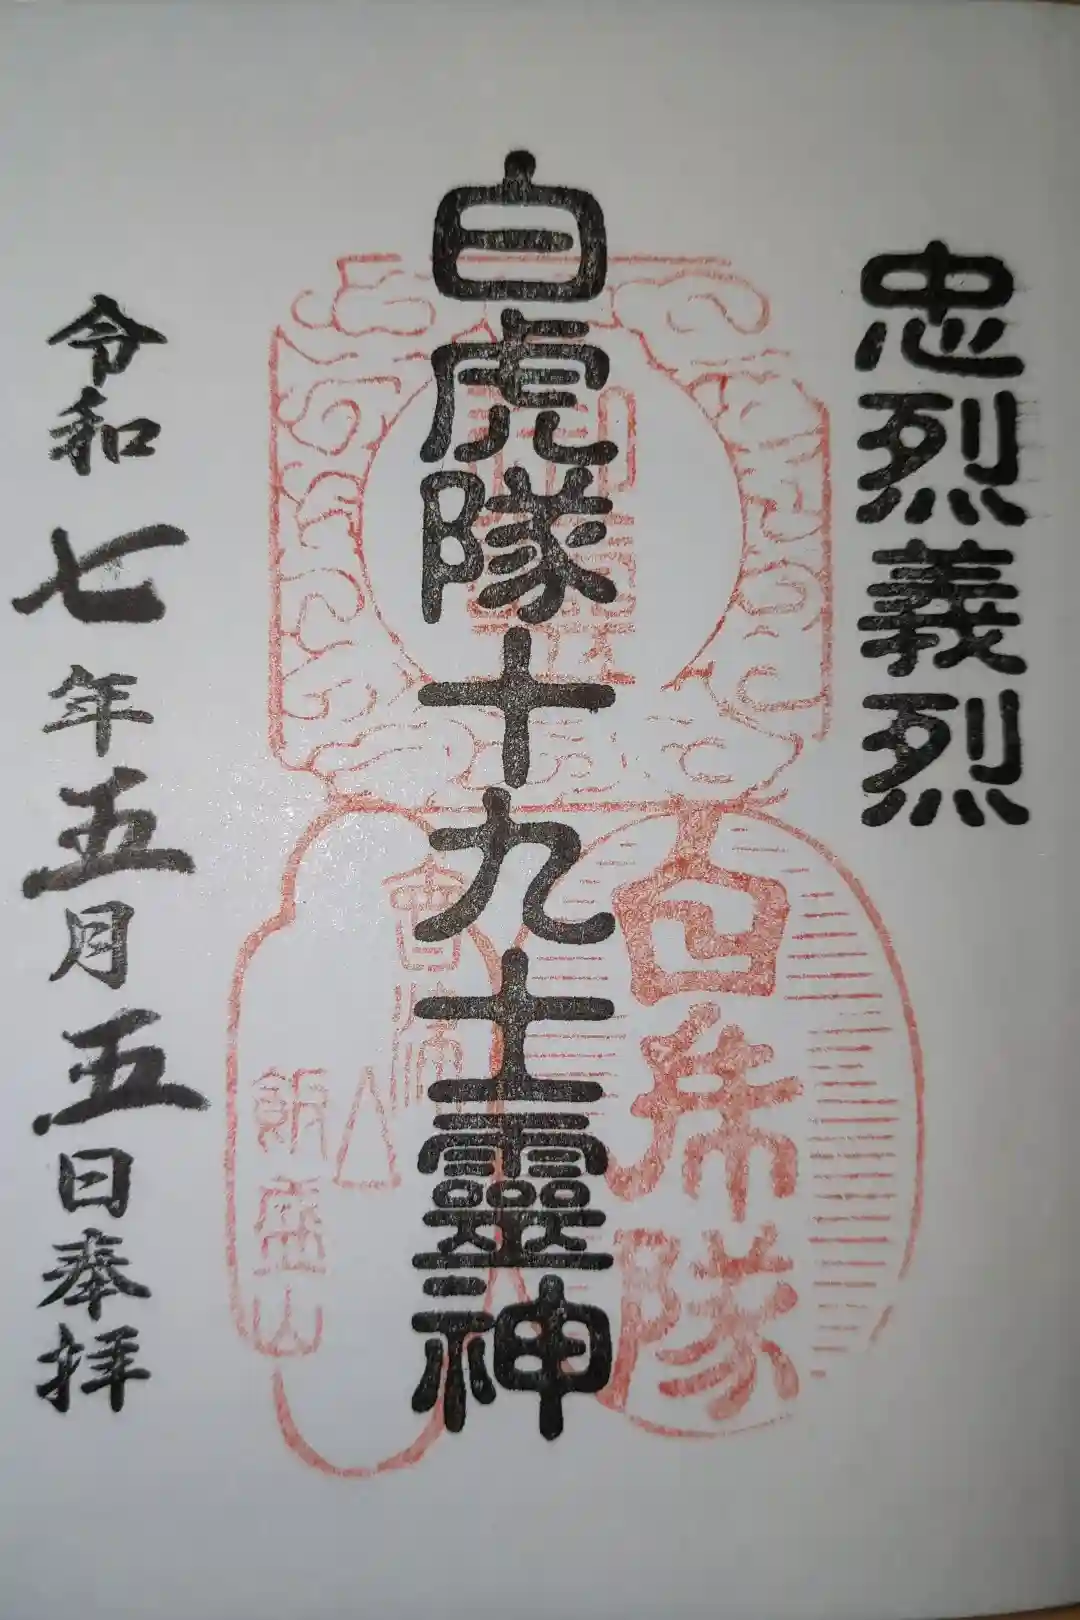 忠烈義烈
白虎隊十九士靈神
白虎隊
會津
飯盛山
令和七年五月五日奉拝